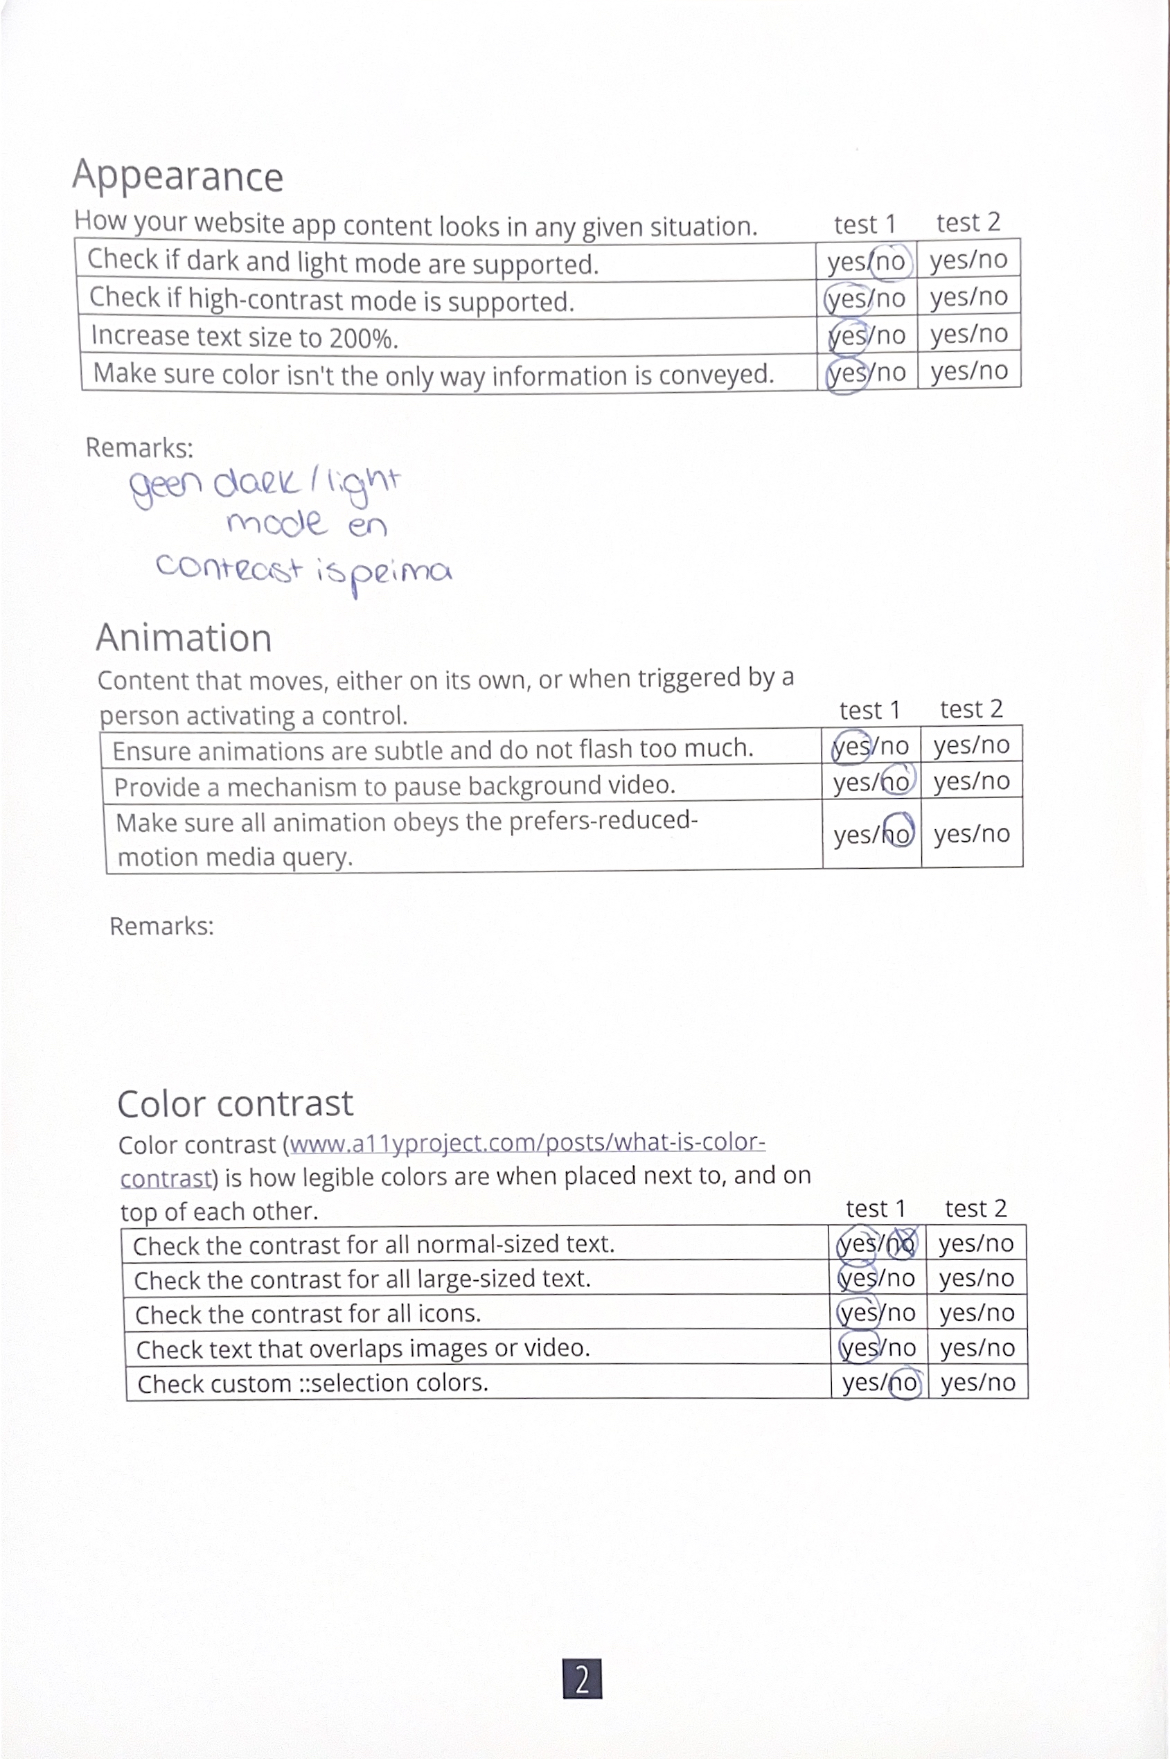 Appearance
How your website app content looks in any given situation. test 1 test 2
Check if dark and light mode are supported. yes/no yes/no
Check if high-contrast mode is supported. yes/no yes/no
Increase text size to 200%. yes/no yes/no
Make sure color isn't the only way information is conveyed. yes/no yes/no
Remarks:
geen dark/light
mode en
contrast is prima
Animation
Content that moves, either on its own, or when triggered by a
person activating a control. test 1 test 2
Ensure animations are subtle and do not flash too much. yes/no yes/no
Provide a mechanism to pause background video. yes/no yes/no
Make sure all animation obeys the prefers-reduced-
motion media query. yes/no yes/no
Remarks:
Color contrast
Color contrast (www.a11yproject.com/posts/what-is-color-
contrast) is how legible colors are when placed next to, and on
top of each other. test 1 test 2
Check the contrast for all normal-sized text. yes/no yes/no
Check the contrast for all large-sized text. yes/no yes/no
Check the contrast for all icons. yes/no yes/no
Check text that overlaps images or video. yes/no yes/no
Check custom ::selection colors. yes/no yes/no
2